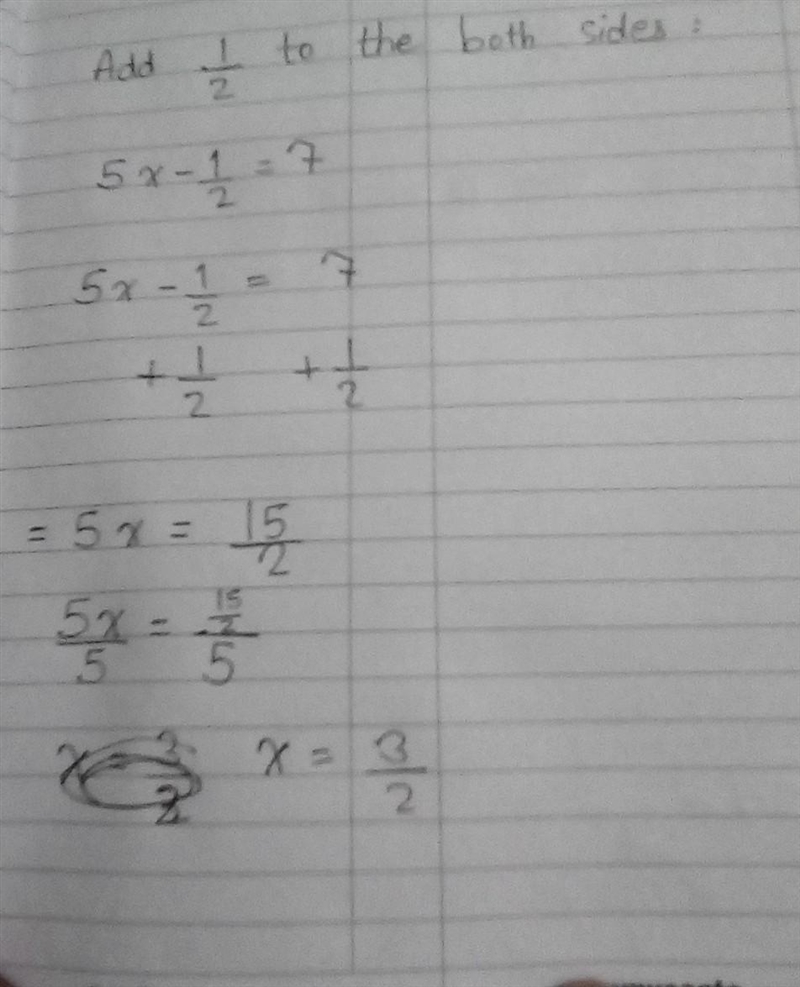 Add 1/2 to the both sides:
5x - 1/2 = 7
5x - 1/2 = 7
+ 1/2 + 1/2
= 5x = 15/2
5x/5 = 15/2/5
x = 3/2